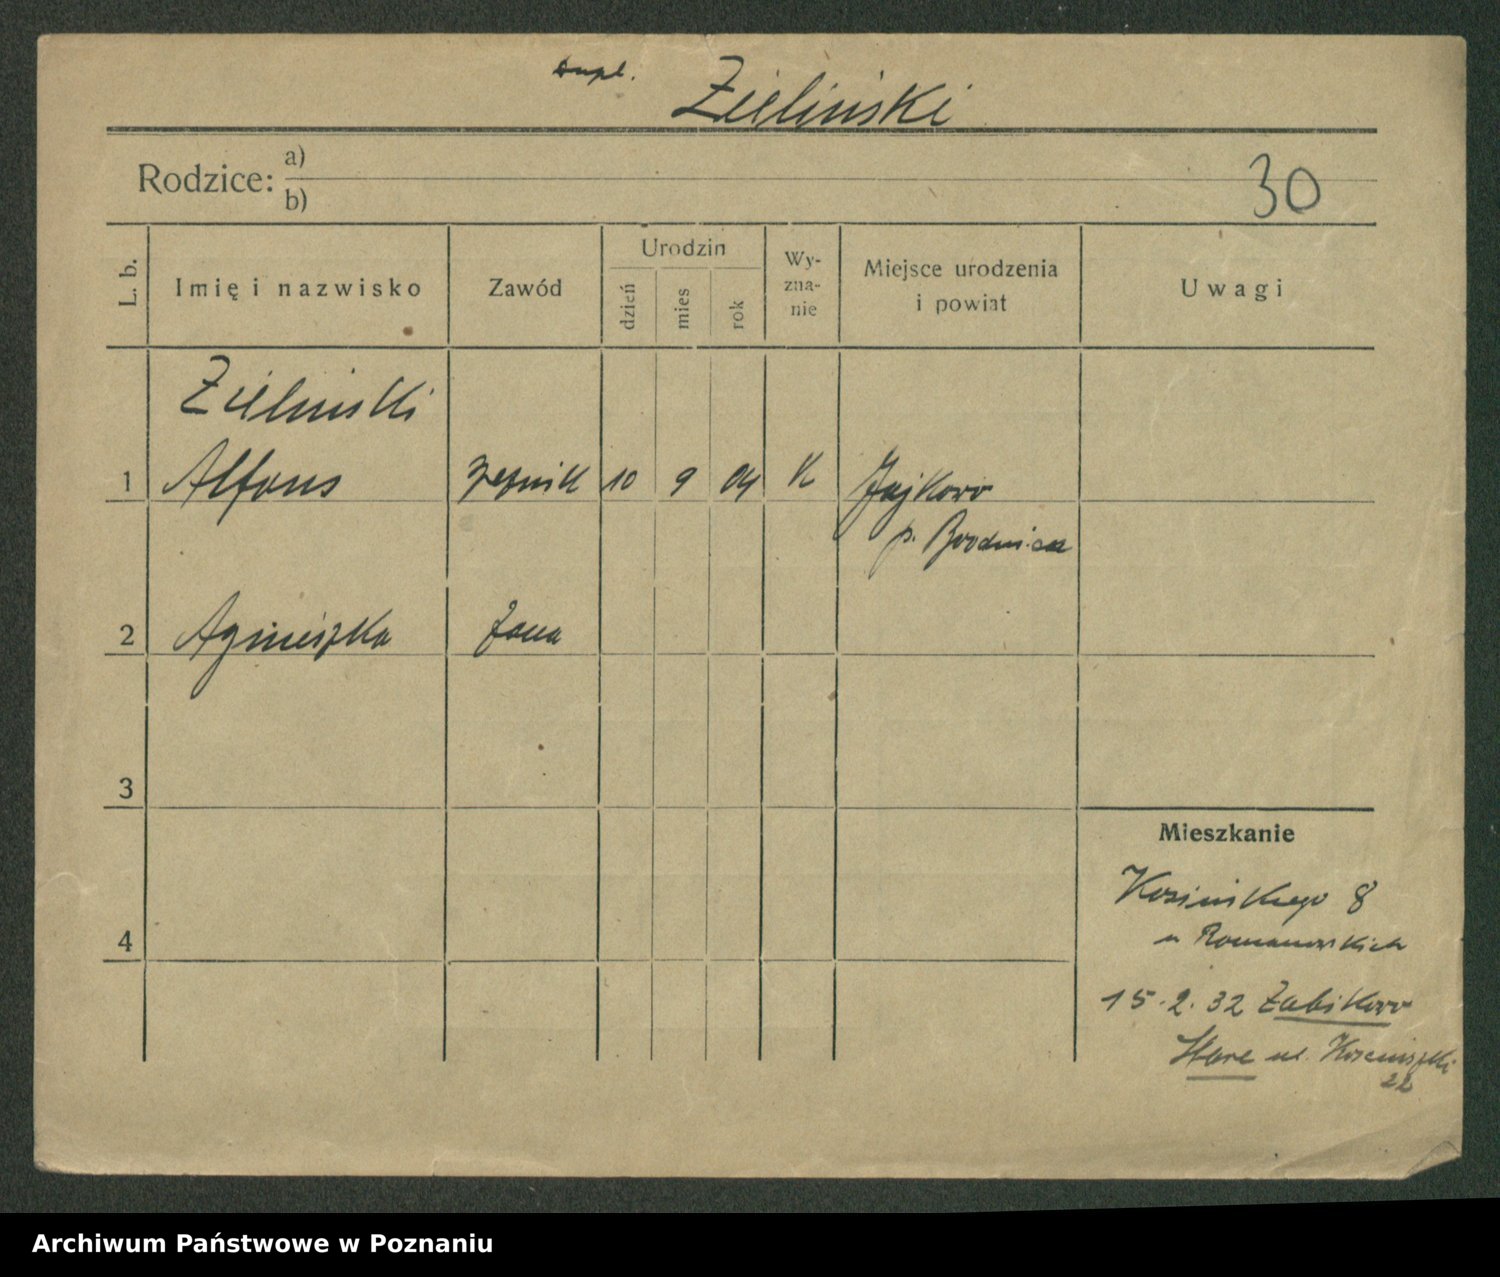 Dupl. Zieliński
Rodzice: a)
b)
30
L. b.
Imię i nazwisko
Zawód
Urodzin
dzień
mies
rok
Wy-
zna-
nie
Miejsce urodzenia
i powiat
Uwagi
Zieliński
1 Alfons rzeźnik 10 9 04 K Jajkowo
p. Brodnica
2 Agnieszka żona
3
4
Mieszkanie
Kosińskiego 8
u Romanowskich
15.2.32 Żabikowo
Stare ul.
22
Archiwum Państwowe w Poznaniu